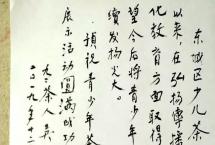 东城区少儿茶
以来，在弘扬传播
化教育方面取得
望今后将青少年
续发扬光大。
预祝青少年茶
展示活动圆满成功
九三茶人 吴
二〇一九年十二